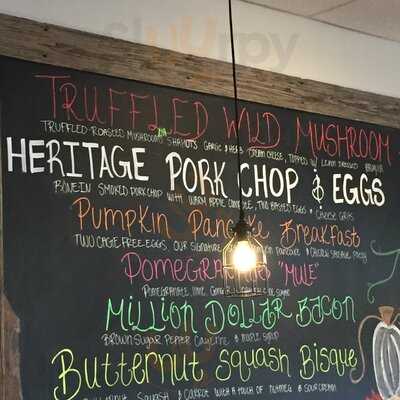 TRUFFLED WILD MUSHROOM
TRUFFLED-ROASTED MUSHROOMS SHALLOTS GARLIC & HERB CREAM CHEESE, TOPPED W/
HERITAGE PORK CHOP & EGGS
BONE IN SMOKED PORK CHOP WITH WARM APPLE COMPOTE, TWO BASTED EGGS & CHEESE GRITS
PUMPKIN PANCAKE BREAKFAST
TWO CAGE FREE EGGS, OUR SIGNATURE PANCAKE & CHICKEN SAUSAGE PATTY
POMEGRANATE "MULE"
POMEGRANATE, LIME,
MILLION DOLLAR BACON
BROWN SUGAR PEPPER CAYENNE & MAPLE SYRUP
BUTTERNUT SQUASH BISQUE
BUTTERNUT SQUASH & CARROT WITH A TOUCH OF NUTMEG & SOUR CREAM